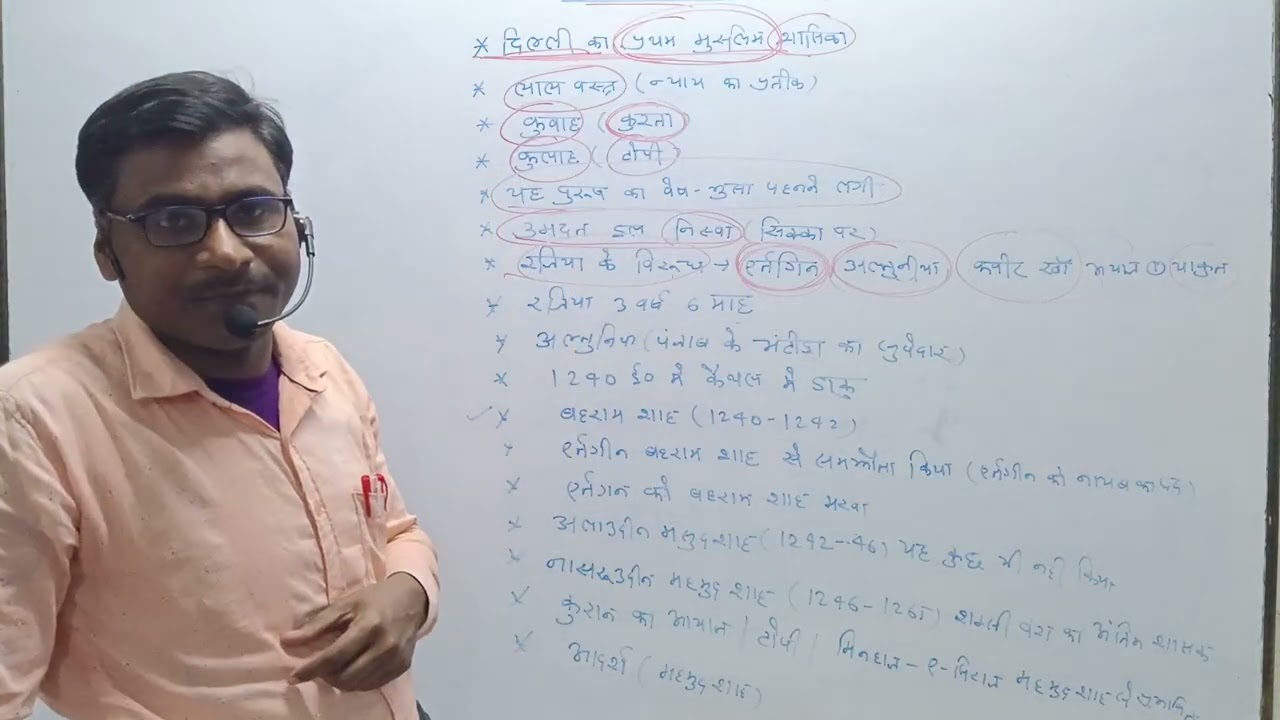 * दिल्ली का प्रथम मुस्लिम शासिका
* लाल वस्त्र (न्याय का प्रतीक)
* कुवाह (कुरता)
* कुलाह (टोपी)
* यह पुरुष का वेष-भुसा पहनने लगी
* उमदत उल निस्वा (सिक्का पर)
* रजिया के विरूध → एतगिन अल्तुनीया कबीर खाँ अयाज याकुत
* रजिया 3 वर्ष 6 माह
* अल्तुनिया (पंजाब के भंटीडा का सुवेदार)
* 1240 ई० मे कैथल मे डाकू
* बहराम शाह (1240-1242)
* एतगीन बहराम शाह से समझौता किया (एतगीन को नायब का पद)
* एतगिन को बहराम शाह मरवा
* अलाउद्दीन मसुदशाह (1242-46) यह कुछ भी नही किया
* नासिरूद्दीन महमुद शाह (1246-1265) शम्सी वंश का अंतिम शासक
* कुरान का आयात | टोपी | मिनहाज-ए-सिराज महमुदशाह से प्रभावित
* आदर्श (महमुदशाह)